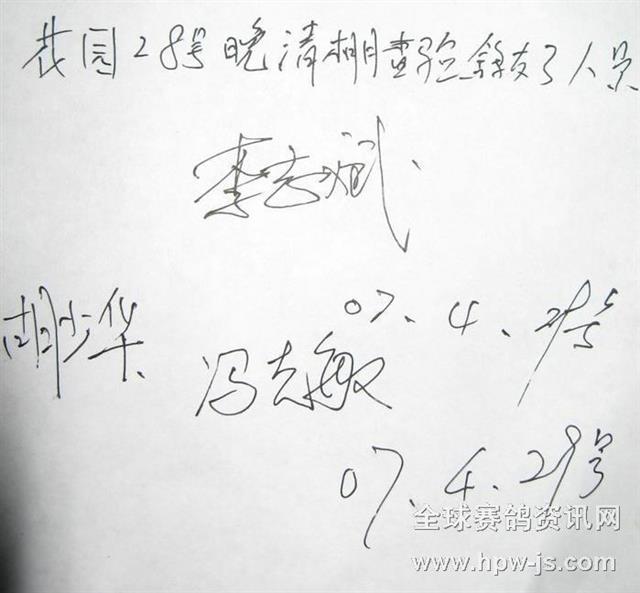 花园28号晚清棚查验鸽友了人员
李志斌
07.4.29号
胡少华
冯志敏
07.4.29号
全球赛鸽资讯网
www.hpw-js.com